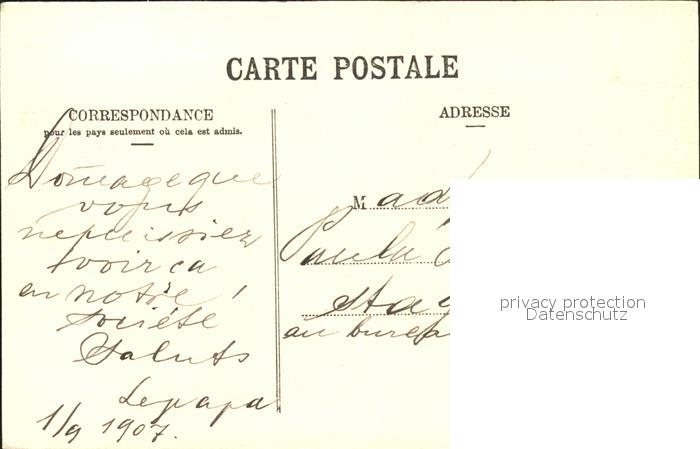 CARTE POSTALE
CORRESPONDANCE
pour les pays seulement où cela est admis.
Domage que
vous
ne puissiez
voir ca
en notre
Société
Saluts
Le papa
1/9 1907.
ADRESSE
Mad
Paula
au burea
privacy protection
Datenschutz